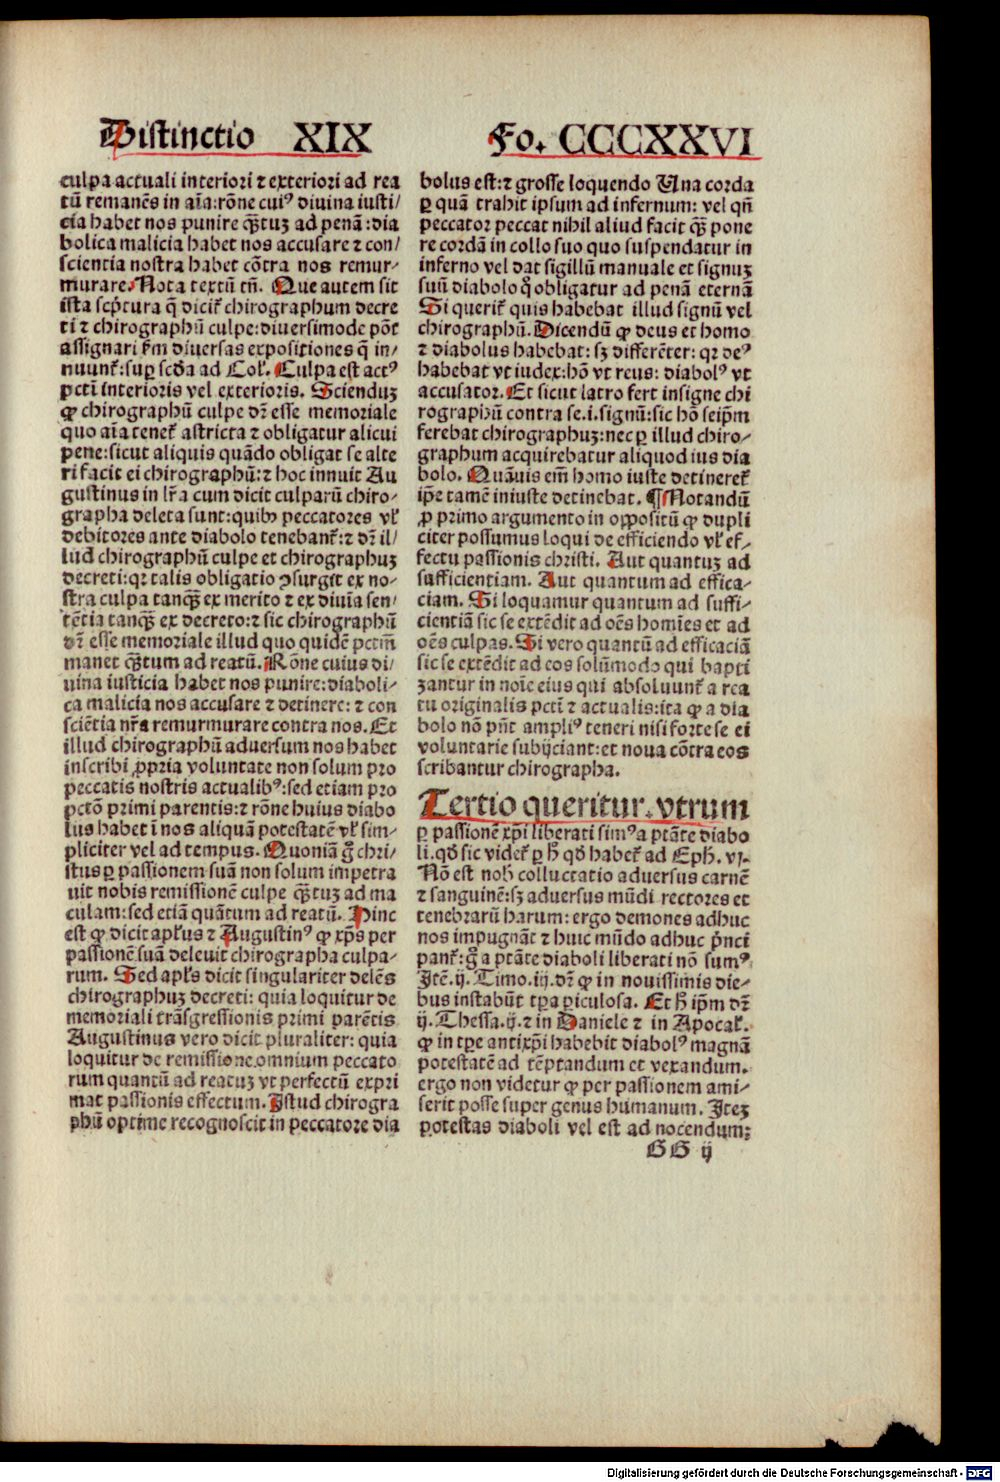 Distinctio XIX Fo. CCCXXVI
culpa actuali interiori ⁊ exteriori ad rea
tū remanēs in aīa: rōne cuiꝰ diuina iusti/
cia habet nos punire qꝫtuꝫ ad penā: dia
bolica malicia habet nos accusare ⁊ con/
scientia nostra habet cōtra nos remur-
murare. Nota textū tn̄. Que autem sit
ista scp̄tura q̄ dicit᷑ chirographum decre
ti ⁊ chirographū culpe: diuersimode pōt
assignari ẜm diuersas expositiones q̄ in/
nuunt᷑: suꝑ scd̓a ad Col᷑. Culpa est actꝰ
pcti interioris vel exterioris. Sciendūꝫ
ꝙ chirographū culpe dr̄ esse memoriale
quo aīa tenet᷑ astricta ⁊ obligatur alicui
pene: sicut aliquis quādo obligat se alte
ri facit ei chirographū: ⁊ hoc innuit Au
gustinus in lr̄a cum dicit culparū chiro-
grapha deleta sunt: quibꝰ peccatores vl᷑
debitores ante diabolo tenebant᷑: ⁊ dr̄ il/
lud chirographū culpe et chirographuꝫ
decreti: qꝛ talis obligatio ꝯsurgit ex no-
stra culpa tanqꝫ ex merito ⁊ ex diuīa sen/
tētia tanqꝫ ex decreto: ⁊ sic chirographū
dr̄ esse memoriale illud quo quidē pctm̄
manet qꝫtum ad reatū. Rōne cuius di/
uina iusticia habet nos punire: diaboli-
ca malicia nos accusare ⁊ detinere: ⁊ con
sciētia nr̄a remurmurare contra nos. Et
illud chirographū aduersum nos habet
inscribi ꝓpria voluntate non solum pro
peccatis nostris actualibꝰ: sed etiam pro
pctō primi parentis: ⁊ rōne huius diabo
lus habet ī nos aliquā potestatē vl᷑ sim-
pliciter vel ad tempus. Quoniā g̊ chri/
stus ꝑ passionem suā non solum impetra
uit nobis remissionē culpe qꝫtuꝫ ad ma
culam: sed etiā quātum ad reatū. Hinc
est ꝙ dicit apl᷑us ⁊ Augustinꝰ ꝙ xp̄s per
passionē suā deleuit chirographa culpa-
rum. Sed apl᷑s dicit singulariter delēs
chirographuꝫ decreti: quia loquitur de
memoriali trāsgressionis primi parētis
Augustinus vero dicit pluraliter: quia
loquitur de remissione omnium peccato
rum quantū ad reatuꝫ vt perfectū expri
mat passionis effectum. Istud chirogra
phū optime recognoscit in peccatore dia
bolus est: ⁊ grosse loquendo Una corda
ꝑ quā trahit ipsum ad infernum: vel qn̄
peccator peccat nihil aliud facit qꝫ pone
re cordā in collo suo quo suspendatur in
inferno vel dat sigillū manuale et signuꝫ
suū diabolo q̊ obligatur ad penā eternā
Si querit᷑ quis habebat illud signū vel
chirographū. Dicendū ꝙ deus et homo
⁊ diabolus habebat: sꝫ differēter: qꝛ deꝰ
habebat vt iudex: hō vt reus: diabolꝰ vt
accusator. Et sicut latro fert insigne chi
rographū contra se .i. signū: sic hō seip̄m
ferebat chirographuꝫ: nec ꝑ illud chiro-
graphum acquirebatur aliquod ius dia
bolo. Quāuis em̄ homo iuste detineret᷑
ip̄e tamē iniuste detinebat. ¶ Notandū
ꝓ primo argumento in oppositū ꝙ dupli
citer possumus loqui de efficiendo vl᷑ ef-
fectu passionis christi. Aut quantuꝫ ad
sufficientiam. Aut quantum ad effica-
ciam. Si loquamur quantum ad suffi-
cientiā sic se extēdit ad oēs homīes et ad
oēs culpas. Si vero quantū ad efficaciā
sic se extēdit ad eos solūmodo qui bapti
zantur in noīe eius qui absoluunt᷑ a rea
tu originalis pcti ⁊ actualis: ita ꝙ a dia
bolo nō pn̄t ampliꝰ teneri nisi forte se ei
voluntarie subijciant: et noua cōtra eos
scribantur chirographa.
Tertio queritur. vtrum
ꝑ passionē xp̄i liberati simꝰ a ptāte diabo
li. qd̓ sic videt᷑ ꝑ h̓ qd̓ habet᷑ ad Eph. vi.
Nō est nob̓ colluctatio aduersus carnē
⁊ sanguinē: sꝫ aduersus mūdi rectores et
tenebrarū harum: ergo demones adhuc
nos impugnāt ⁊ huic mūdo adhuc pͥnci
pant᷑: g̊ a ptāte diaboli liberati nō sumꝰ.
Itē. ij. Timo. iij. dr̄ ꝙ in nouissimis die-
bus instabūt tꝑa ꝑiculosa. Et h̓ ip̄m dr̄
ij. Thessa. ij. ⁊ in Daniele ⁊ in Apocal᷑.
ꝙ in tꝑe antixp̄i habebit diabolꝰ magnā
potestatē ad tēptandum et vexandum.
ergo non videtur ꝙ per passionem ami-
serit posse super genus humanum. Iteꝫ
potestas diaboli vel est ad nocendum:
GG ij
Digitalisierung gefördert durch die Deutsche Forschungsgemeinschaft - DFG